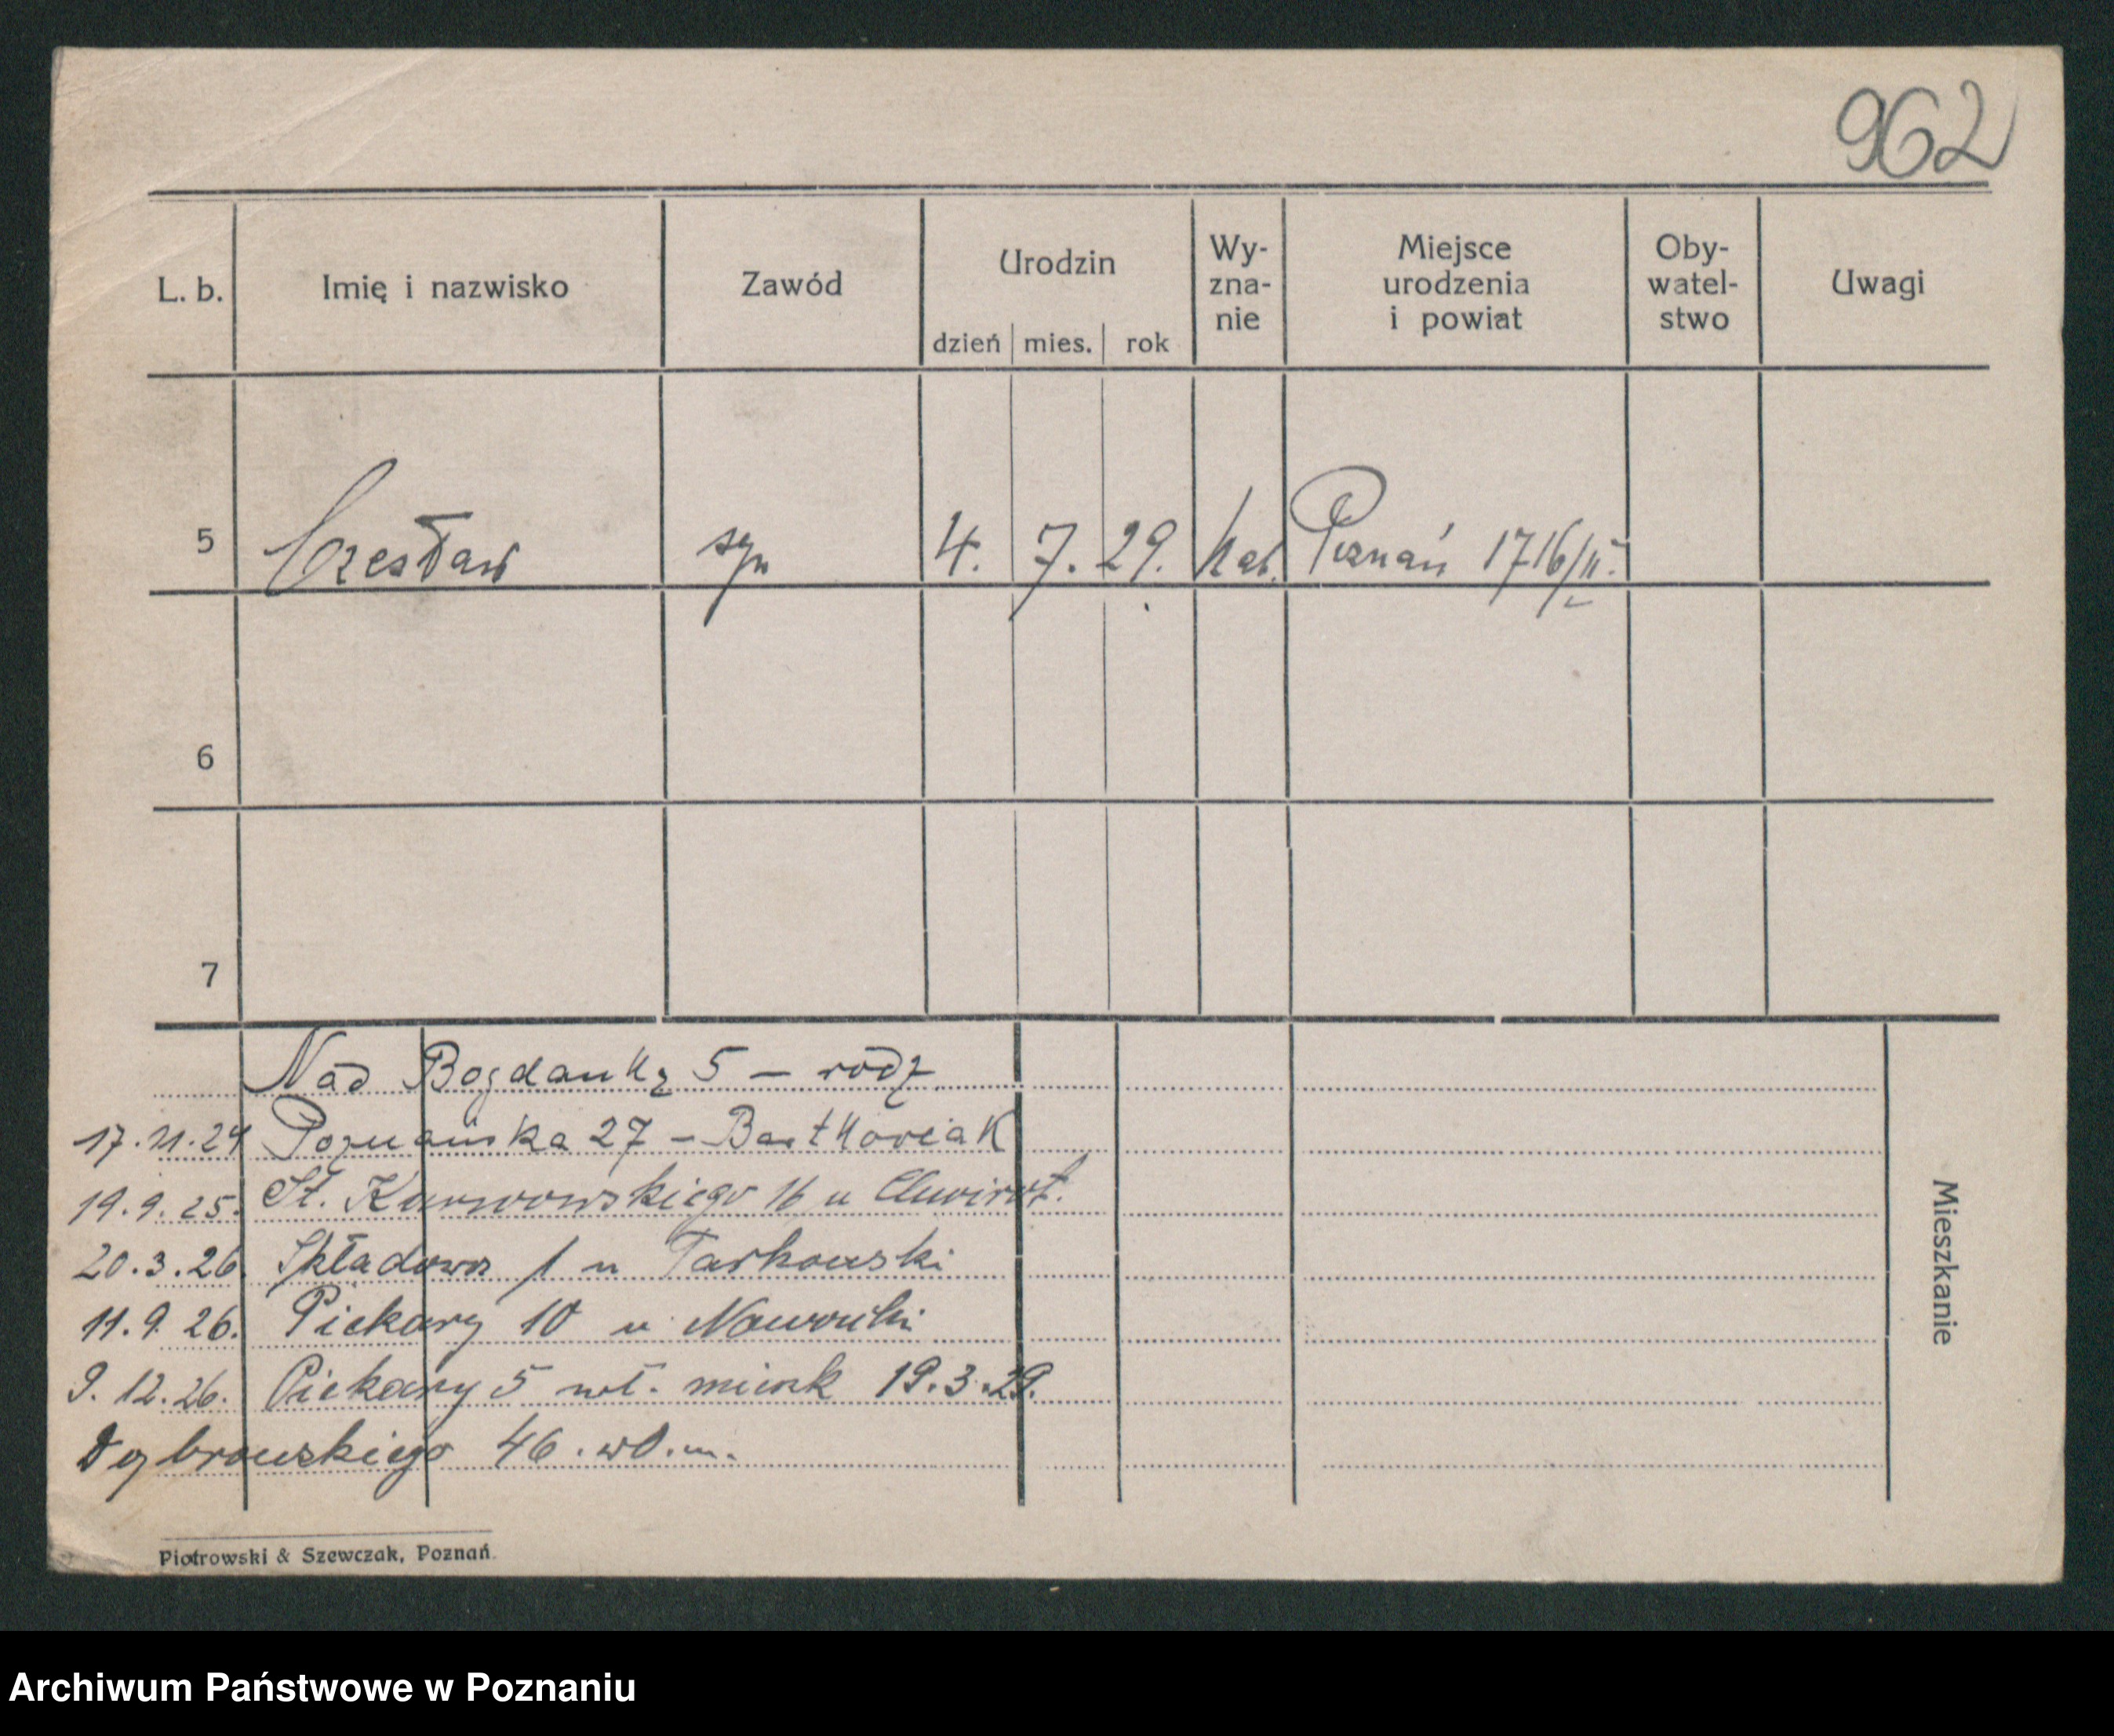 962
L. b. Imię i nazwisko Zawód Urodzin dzień mies. rok Wy-zna-nie Miejsce urodzenia i powiat Oby-watel-stwo Uwagi
5 Czesław syn 4. 7. 29. kat. Poznań 1716/II.
6
7
Nad Bogdanką 5 – rodz.
17.11.24 Poznańska 27 – Bartkowiak
19.9.25. St. Karwowskiego 16 u
20.3.26. Składowa 1 u Tarkowski
11.9.26. Piekary 10 u Nawrocki
9.12.26. Piekary 5 wł. mieszk 19.3.29.
Dąbrowskiego 46. wł. m.
Mieszkanie
Piotrowski & Szewczak, Poznań.
Archiwum Państwowe w Poznaniu